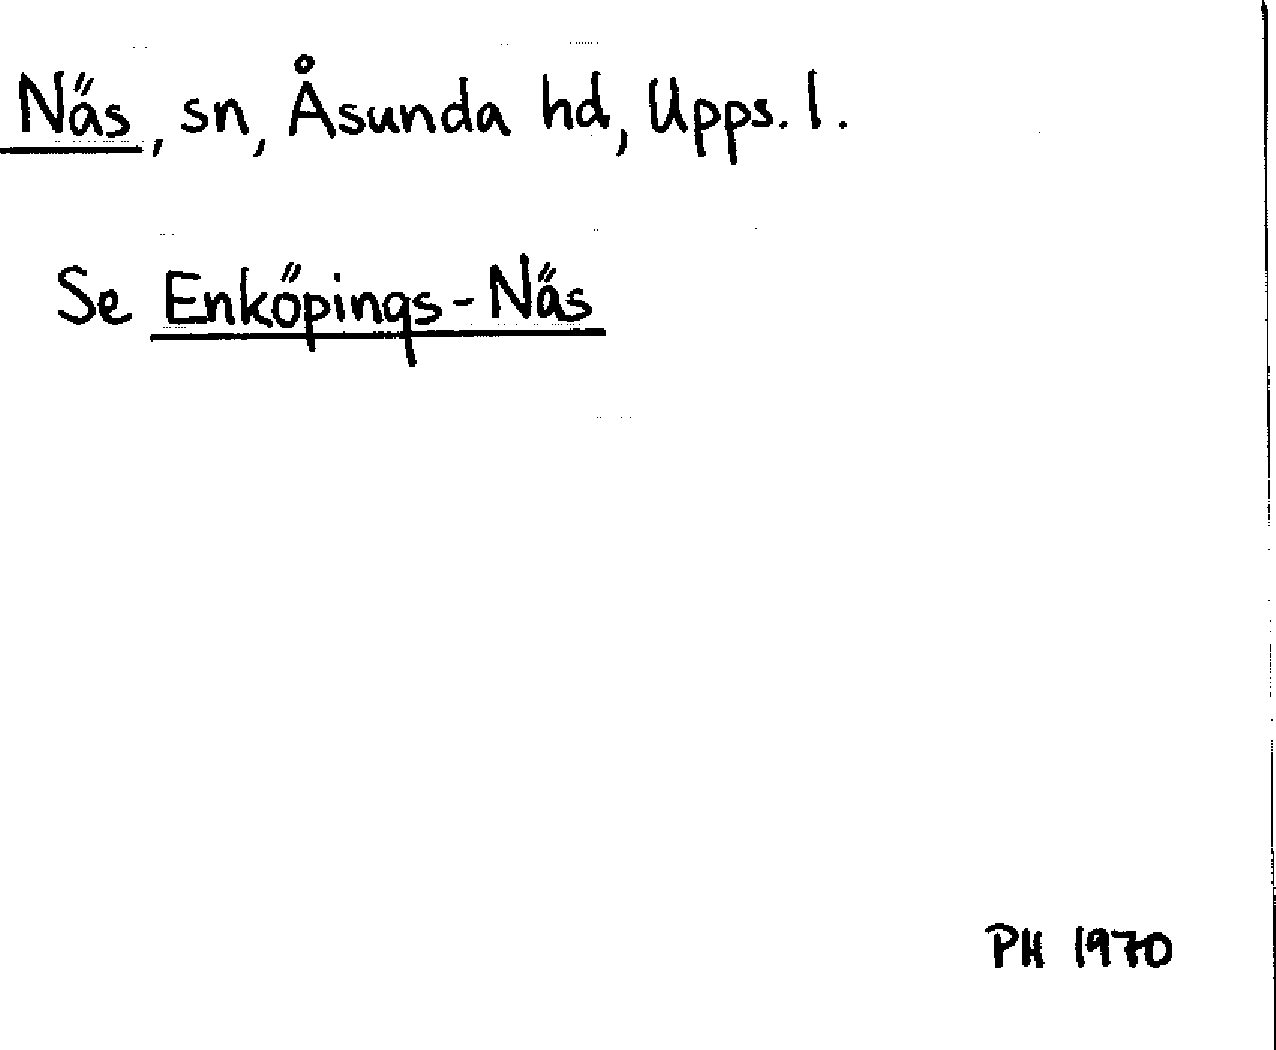 Näs, sn, Åsunda hd, Upps. l.
Se Enköpings-Näs
PH 1970